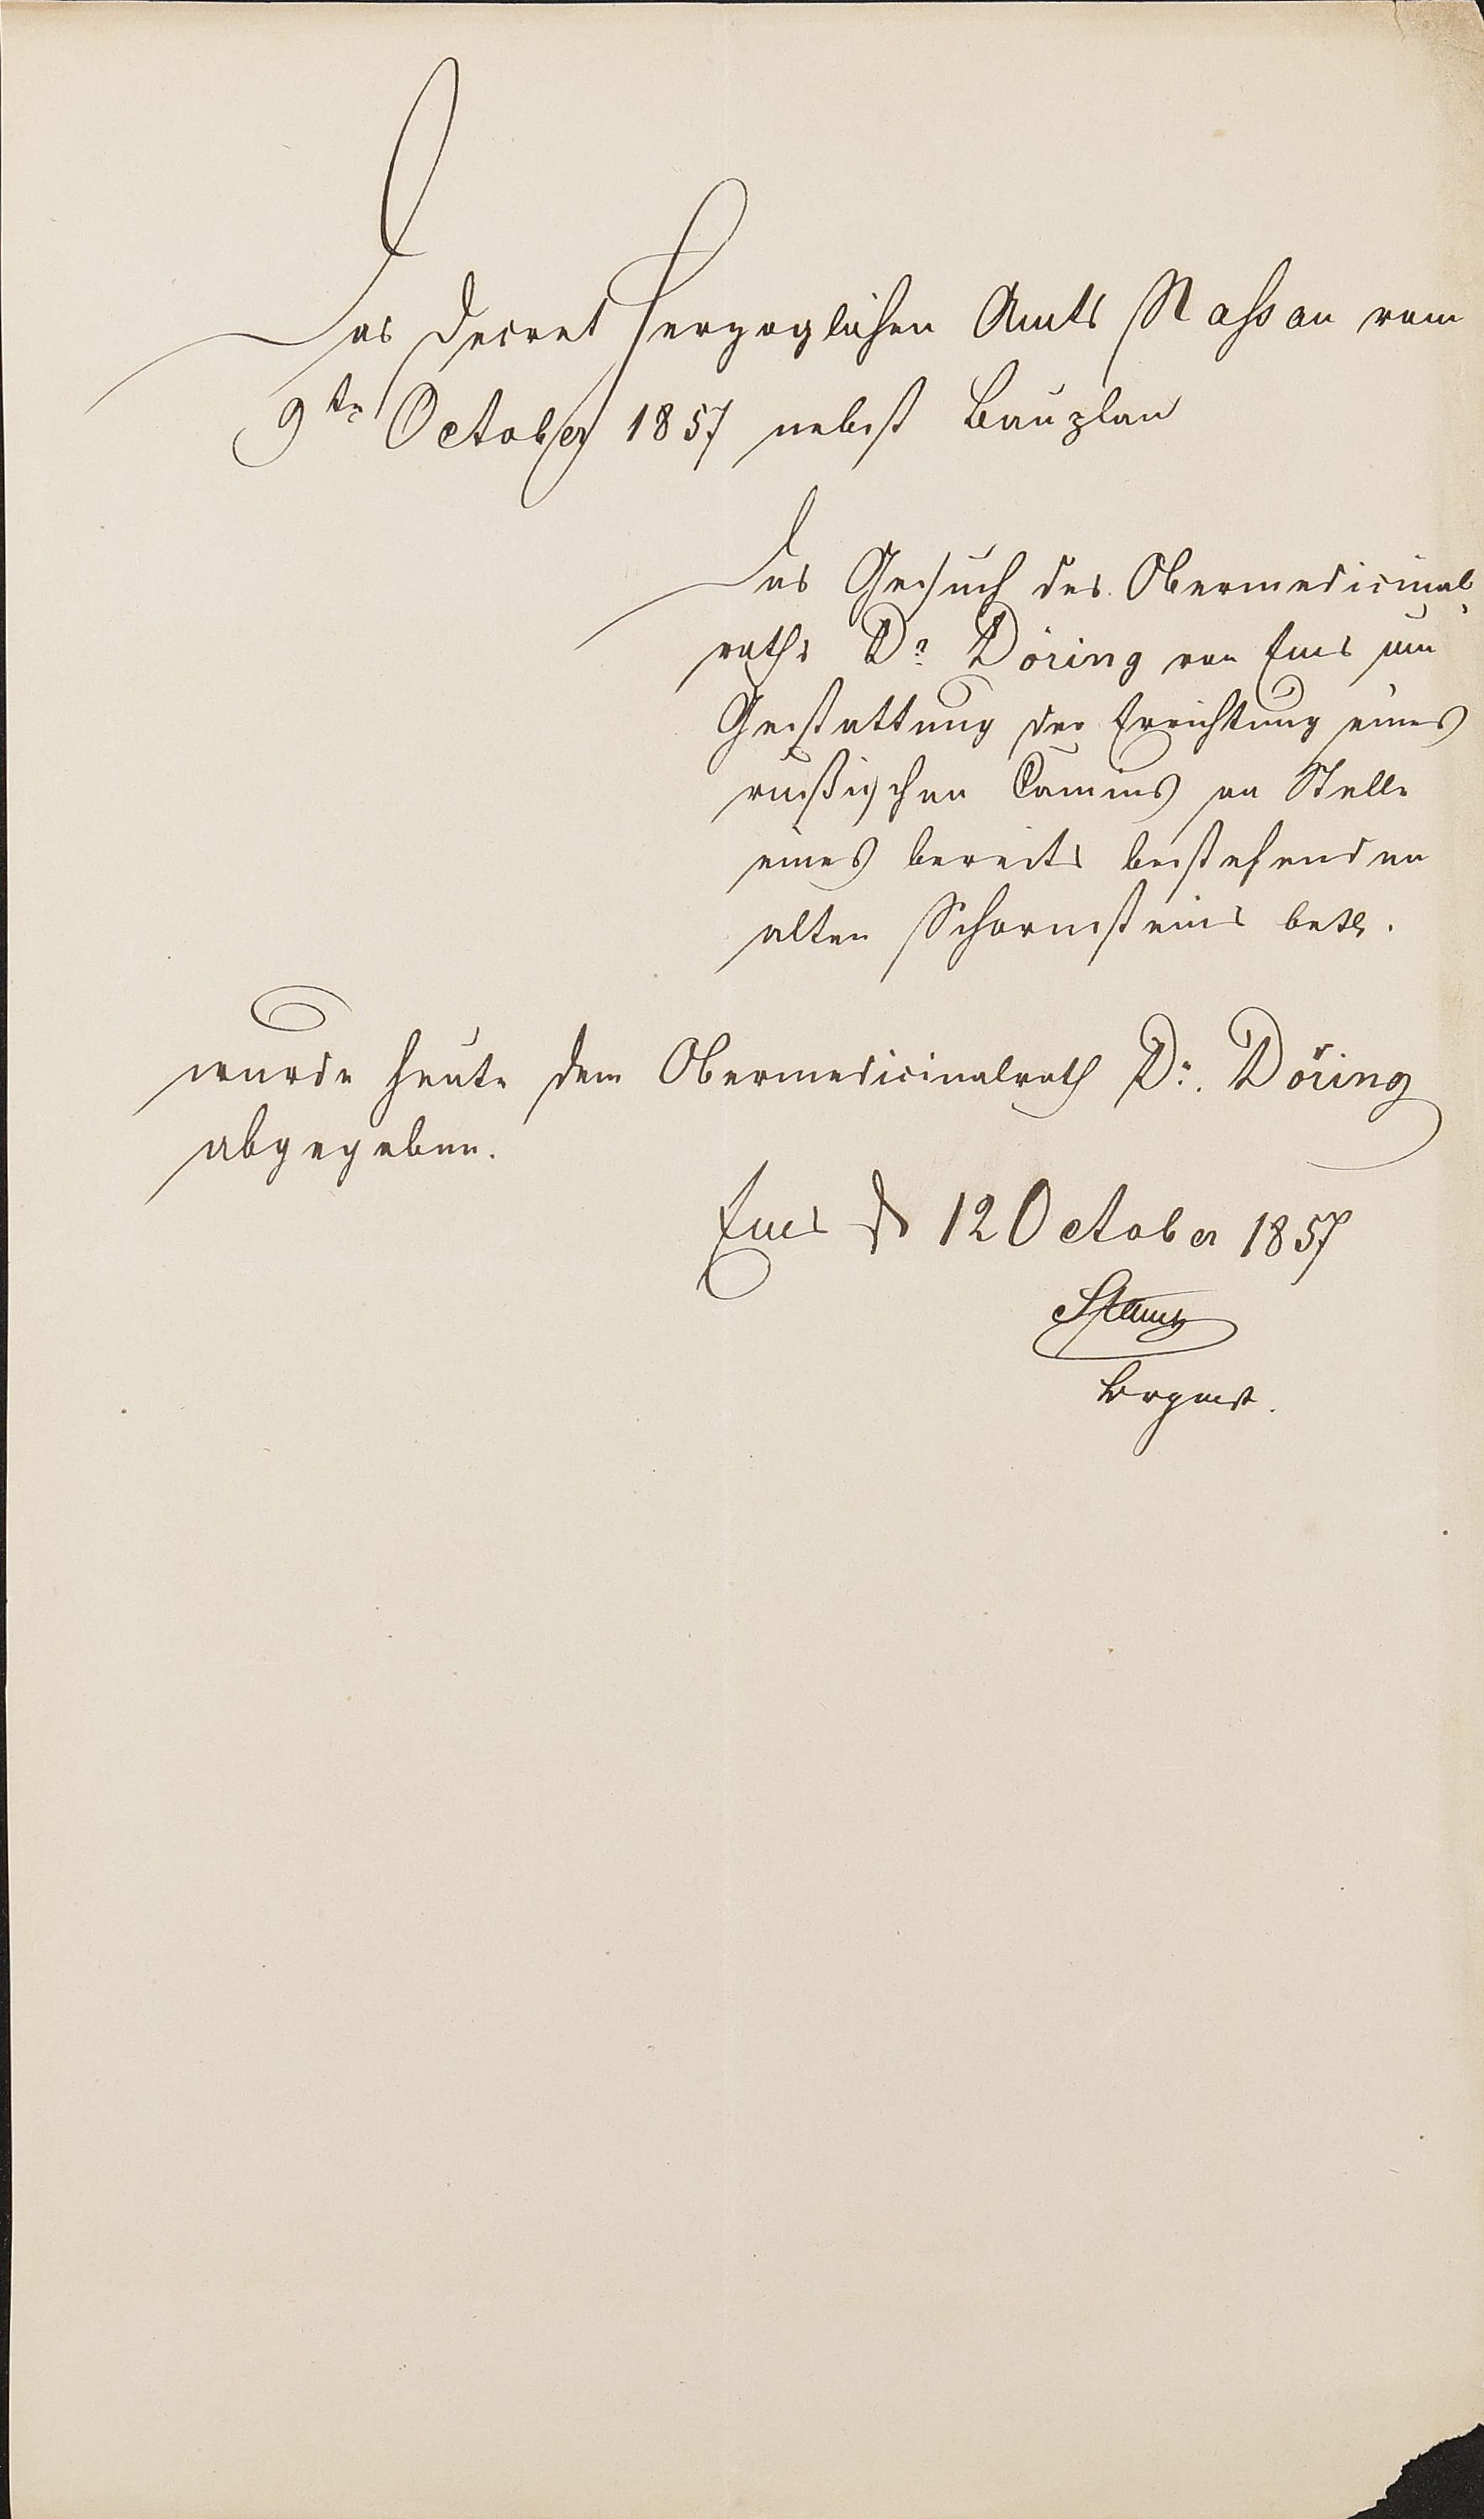 Das Decret Herzoglichen Amts Nassau vom
9ten October 1857 nebst Bauplan
Das Gesuch des Obermedicinal
raths Dr Döring von Ems um
Gestattung der Errichtung eines
rußischen Camins an Stelle
eines bereits bestehenden
alten Schornsteins betr.
wurde heute dem Obermedicinalrath Dr. Döring
abgegeben.
Ems d 12 October 1857
Brgmst.